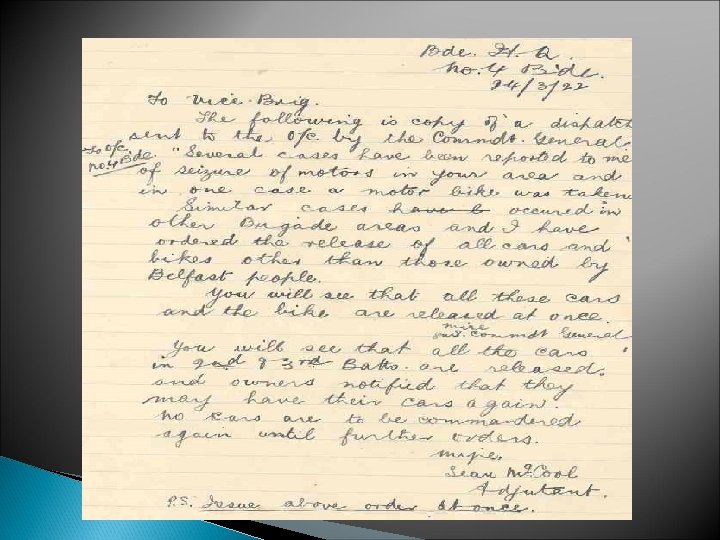 Bde. H. Q.
No. 4 Bde.
24/3/22
To Vice. Brig.
The following is copy of a dispatch
sent to the O/c by the Commdt. General.
To O/c.
No 4 Bde.
"Several cases have been reported to me
of seizure of motors in your area and
in one case a motor bike was taken
Similar cases have b occured in
other Brigade areas and I have
ordered the release of all cars and
bikes other than those owned by
Belfast people.
You will see that all these cars
and the bike are released at once.
mise
Commdt General
You will see that all the cars
in 2nd & 3rd Batts. are released.
and owners notified that they
may have their cars again.
No cars are to be commandered
again until further orders.
Mise.
Sean McCool
Adjutant.
P.S. Issue above order at once.